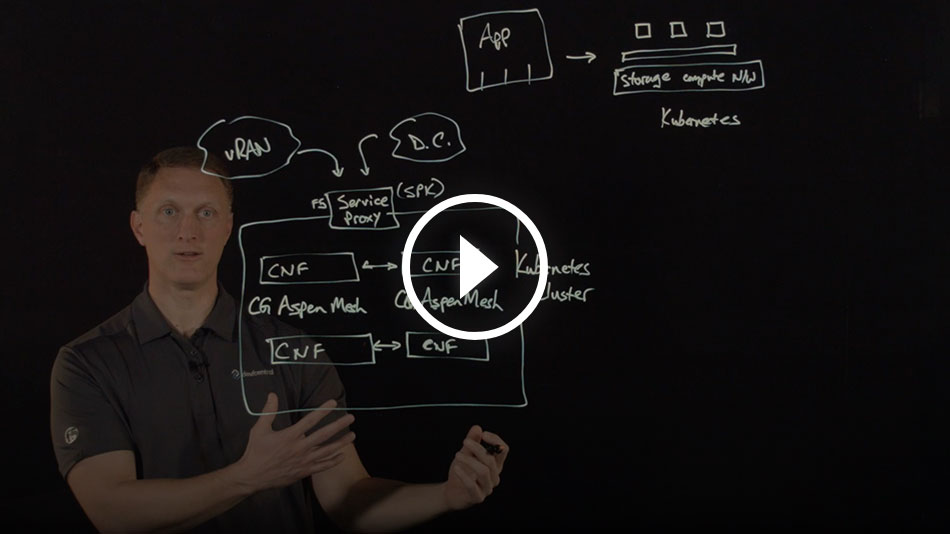 App
Storage compute N/W
Kubernetes
vRAN
D.C.
F5 Service Proxy (SPK)
CNF
CNF
Kubernetes
Cluster
CG Aspen Mesh
CG Aspen Mesh
CNF
CNF